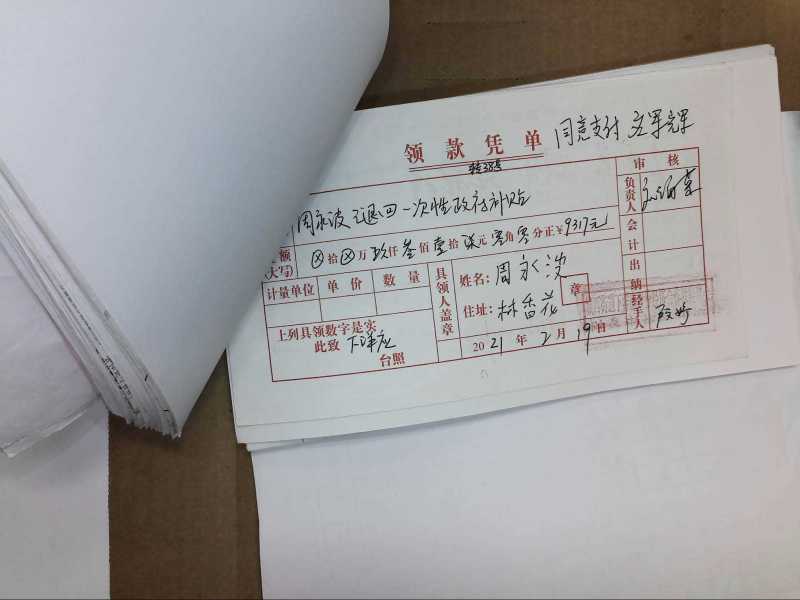 领款凭单
同意支付
审核
周永波
退回一次性政府补贴
额
(大写)
ⓧ拾ⓧ万玖仟叁佰壹拾柒元零角零分正¥9317元
负责人
会计
出纳
经手人
计量单位 单价 数量
具领人盖章
姓名:周永波
住址:林香花
章
上列具领数字是实
此致 下洋应
台照
2021年2月19日